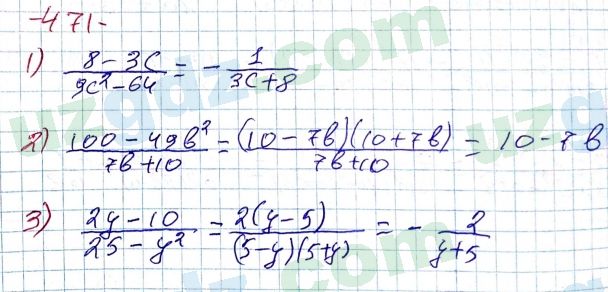 -471-
1) (8 - 3c)/(9c² - 64) = - 1/(3c + 8)
2) (100 - 49b²)/(7b + 10) = (10 - 7b)(10 + 7b)/(7b + 10) = 10 - 7b
3) (2y - 10)/(25 - y²) = 2(y - 5)/((5 - y)(5 + y)) = - 2/(y + 5)